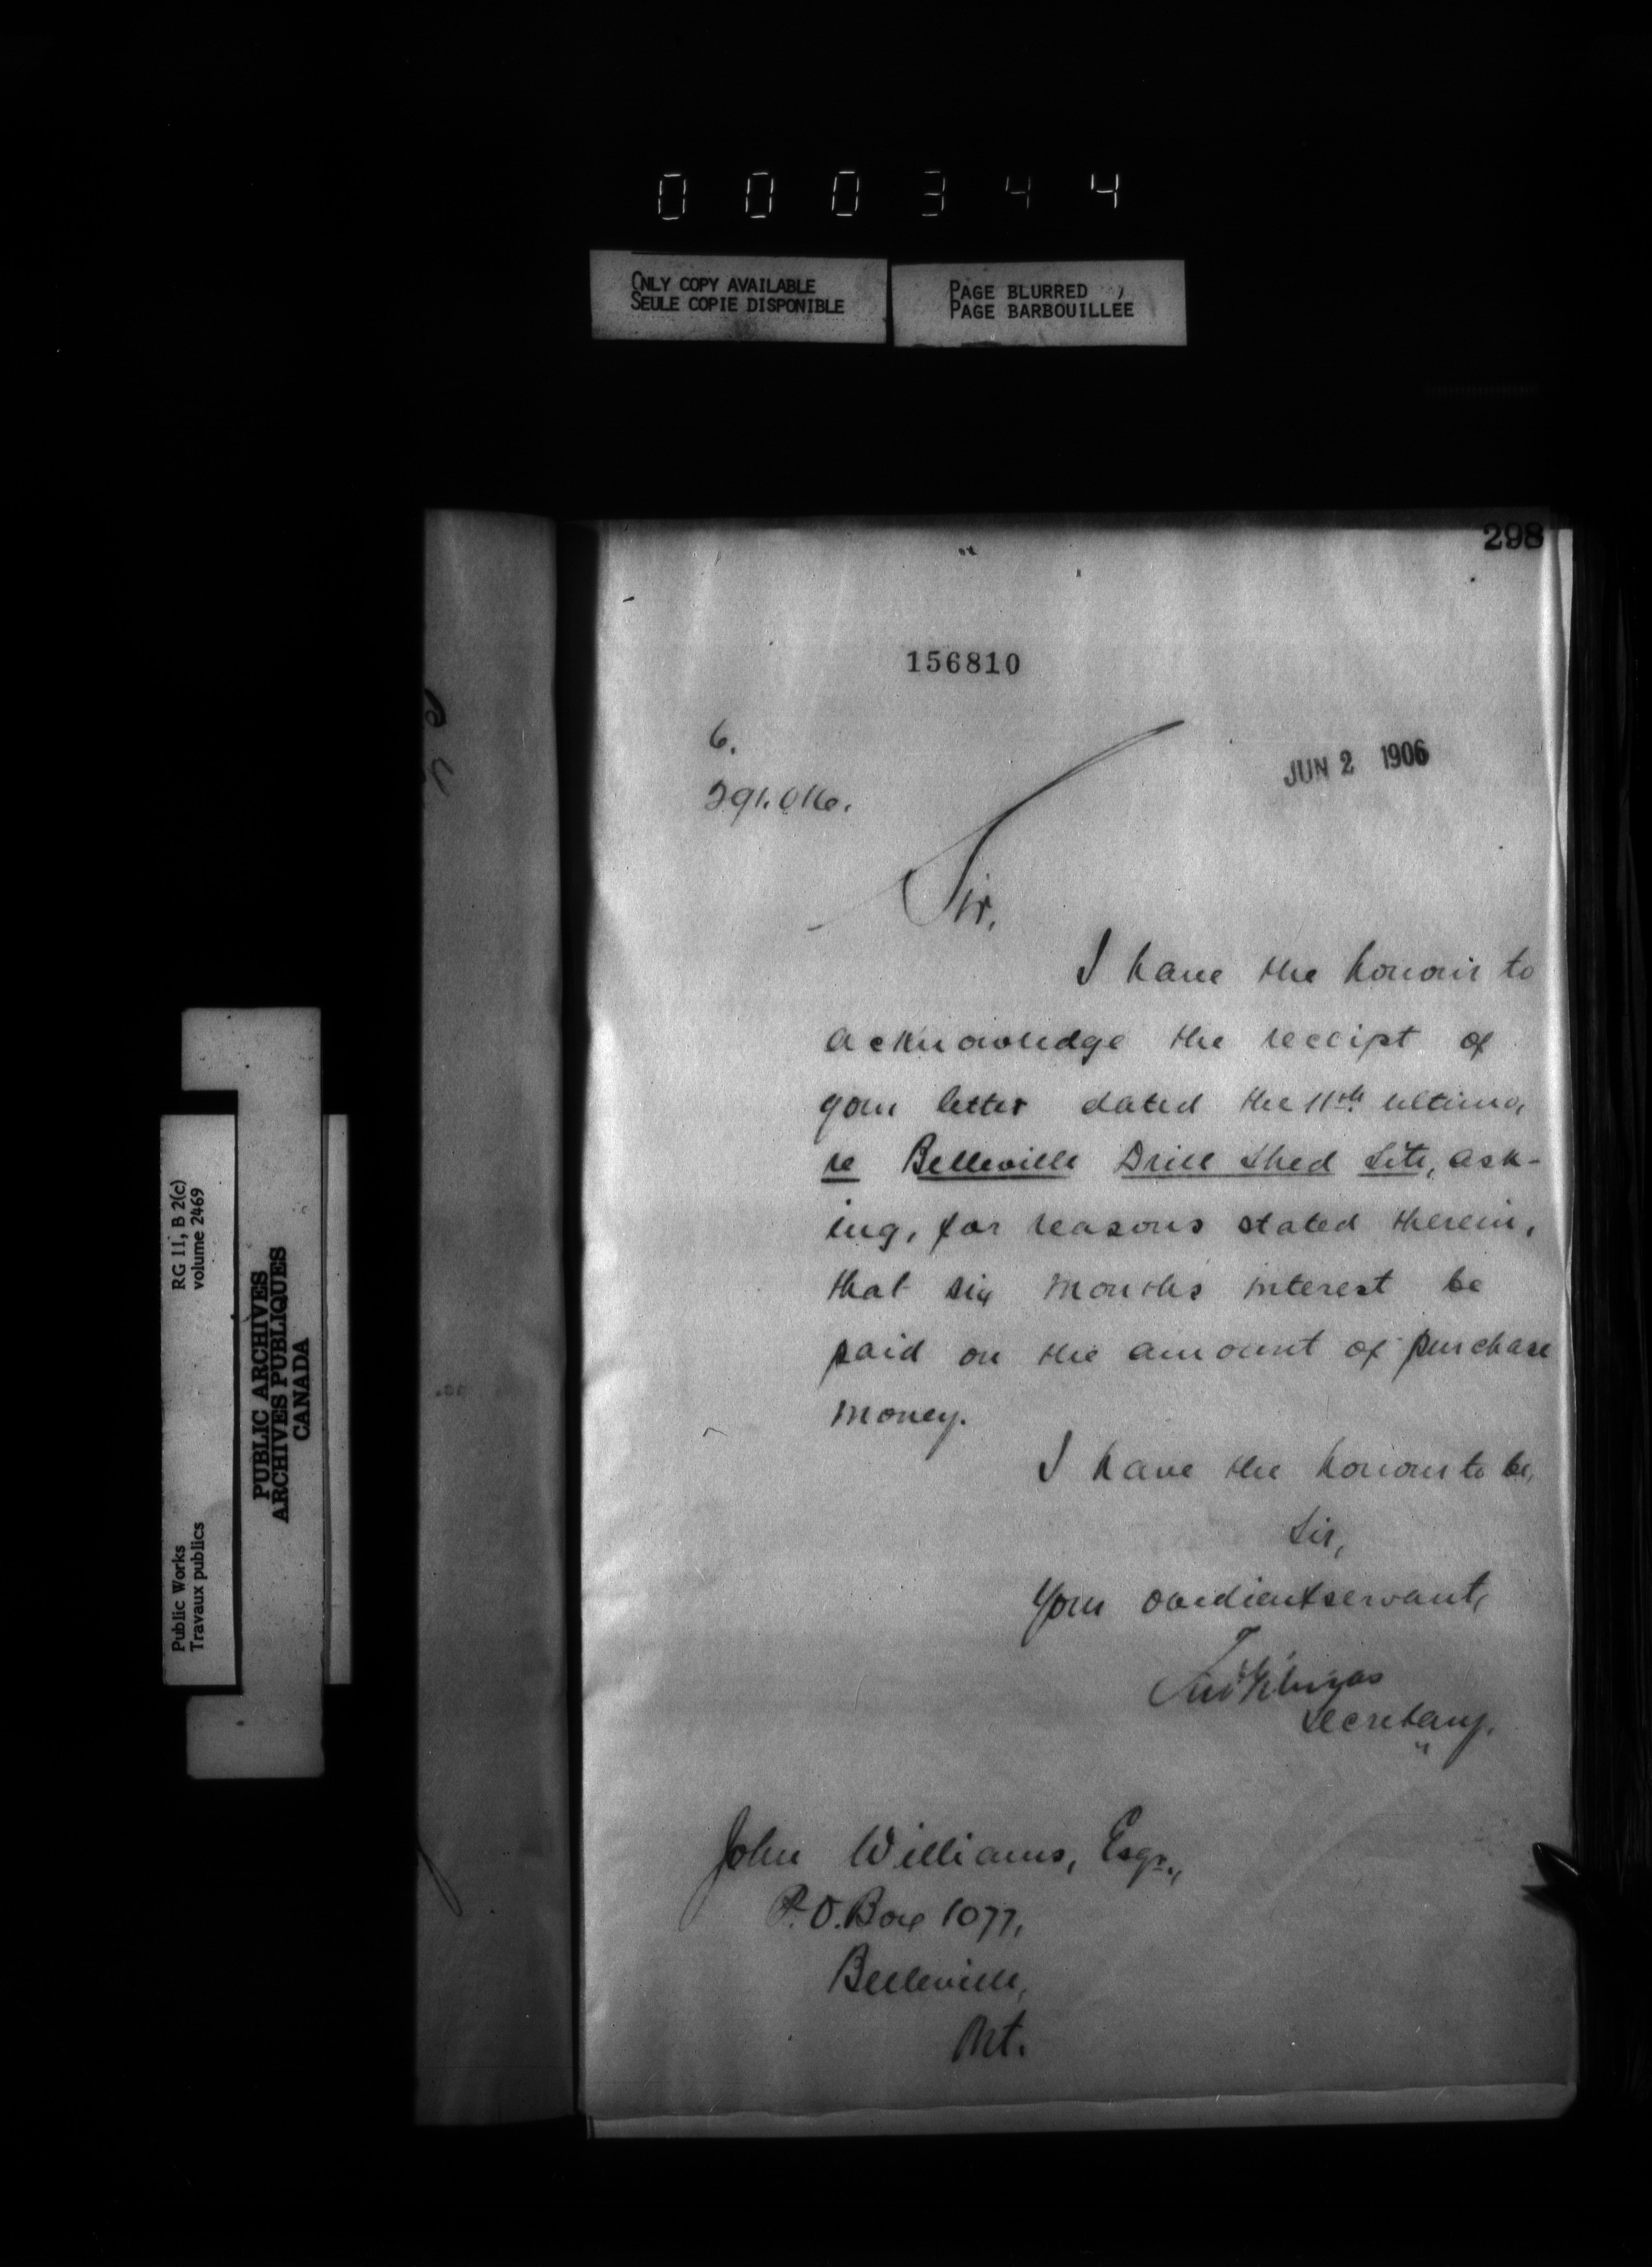 000344
ONLY COPY AVAILABLE
SEULE COPIE DISPONIBLE
PAGE BLURRED
PAGE BARBOUILLEE
298
156810
6.
291.016.
JUN 2 1906
Sir,
I have the honour to
acknowledge the receipt of
your letter dated the 11th ultimo,
re Belleville Drill Shed Site, ask-
ing, for reasons stated therein,
that six months interest be
paid on the amount of purchase
money.
I have the honour to be,
Sir,
Your obedient servant,
Secretary.
John Williams, Esqr.,
P.O. Box 1077,
Belleville,
Ont.
Public Works
Travaux publics
RG 11, B 2(c)
volume 2469
PUBLIC ARCHIVES
ARCHIVES PUBLIQUES
CANADA